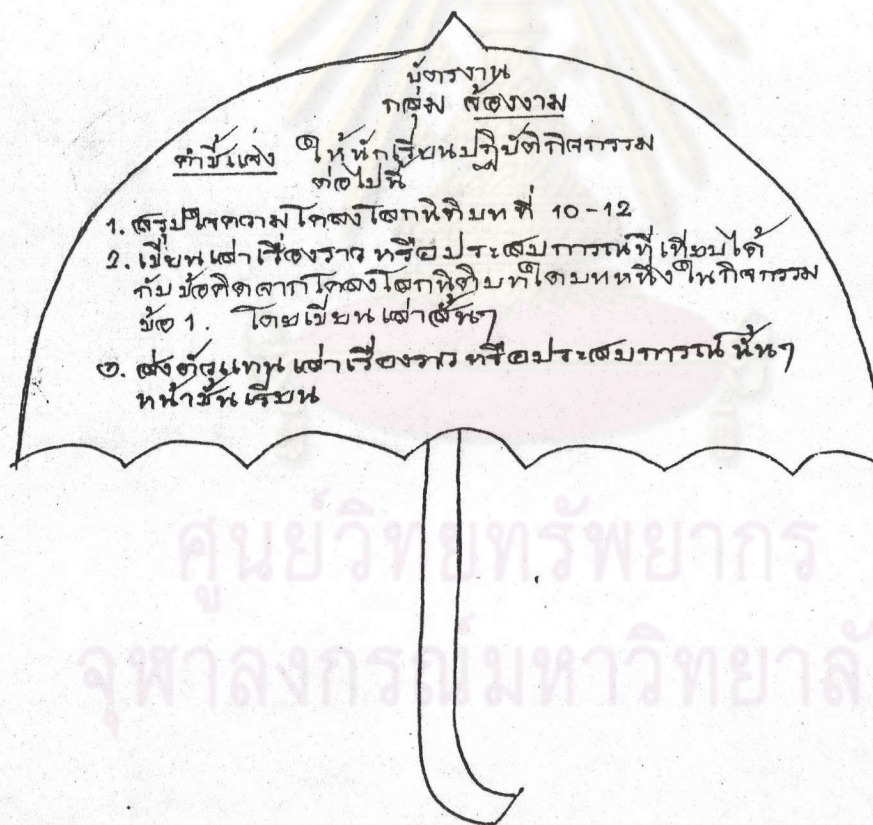 บัตรงาน
กลุ่ม ส้องงาม
คำชี้แจง ให้นักเรียนปฏิบัติกิจกรรม
ต่อไปนี้
1. สรุปใจความโคลงโลกนิติบทที่ 10-12
2. เขียนเล่าเรื่องราวหรือประสบการณ์ที่เทียบได้
กับข้อคิดจากโคลงโลกนิติบทใดบทหนึ่งในกิจกรรม
ข้อ 1. โดยเขียนเล่าสั้นๆ
๓. ส่งตัวแทนเล่าเรื่องราวหรือประสบการณ์นั้นๆ
หน้าชั้นเรียน
ศูนย์วิทยทรัพยากร
จุฬาลงกรณ์มหาวิทยาลั